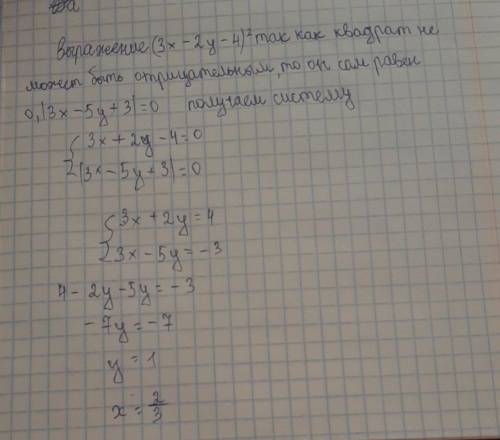 Выражение (3x - 2y - 4)² так как квадрат не
может быть отрицательным, то он сам равен
0, |3x - 5y + 3| = 0 получаем систему
{ 3x + 2y - 4 = 0
|3x - 5y + 3| = 0
{ 3x + 2y = 4
3x - 5y = -3
4 - 2y - 5y = -3
-7y = -7
y = 1
x = 2/3